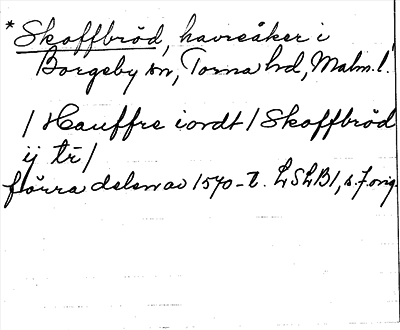 * Skoffbröd, havreåker i
Borgeby sn, Torna hd, Malm.l.
/ Hauffre iordt / Skoffbröd
ij tr /
förra delen av 1570-t. LSLB1, s.7. orig.